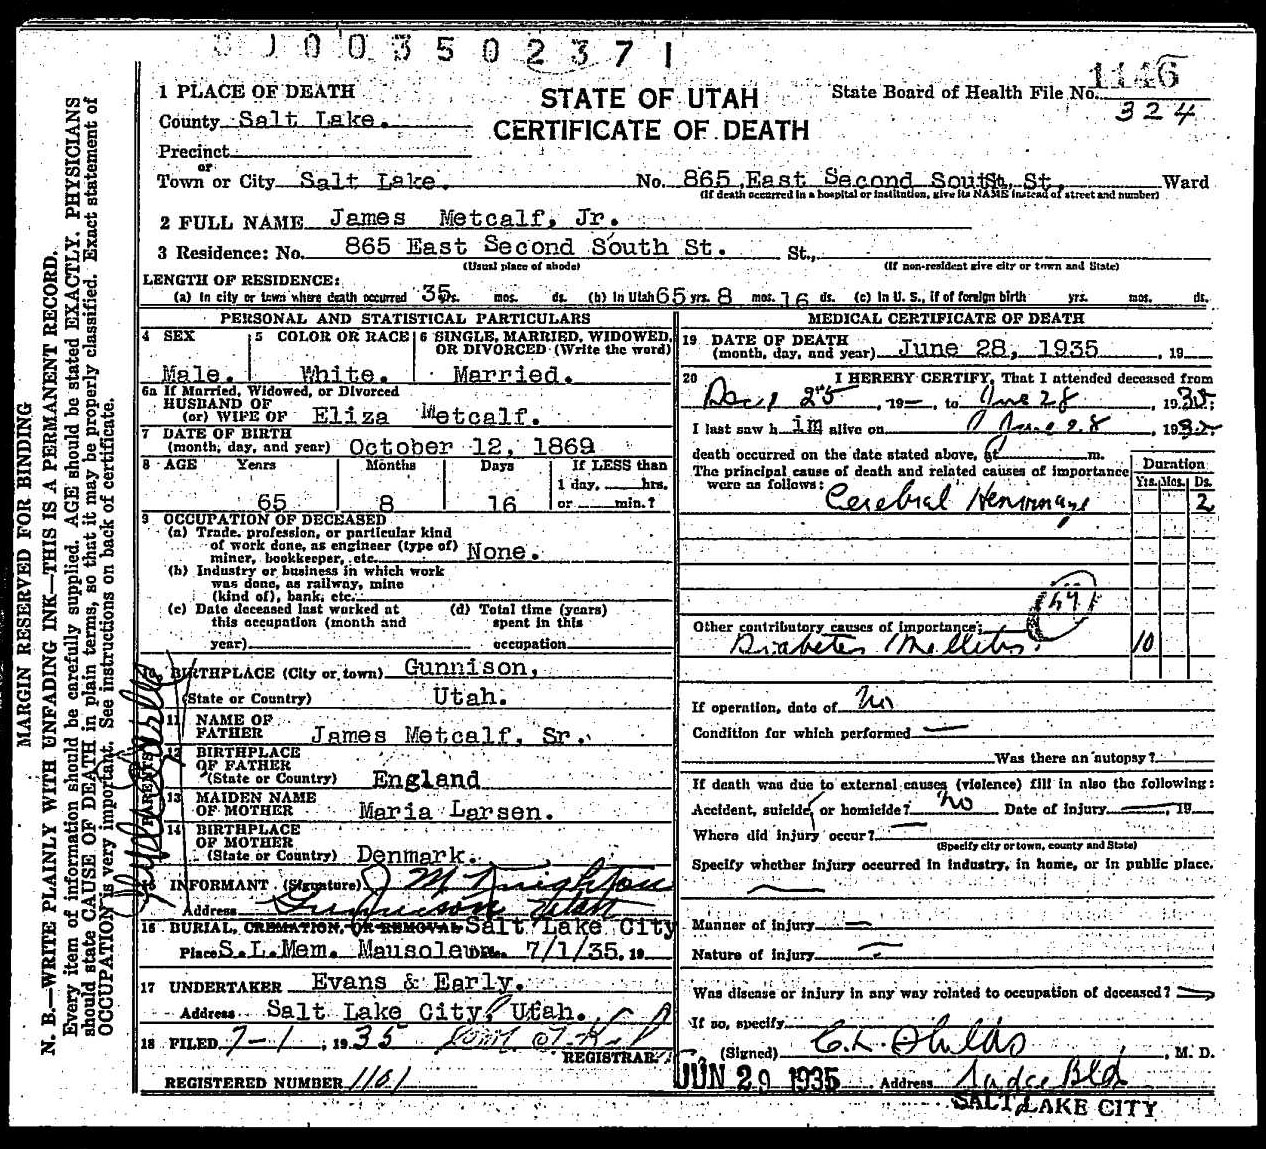 00350 2371
1146
324
1 PLACE OF DEATH
STATE OF UTAH
CERTIFICATE OF DEATH
State Board of Health File No.
County Salt Lake.
Precinct
or
Town or City Salt Lake. No. 865 East Second South St. Ward
(If death occurred in a hospital or institution, give its NAME instead of street and number)
2 FULL NAME James Metcalf, Jr.
3 Residence: No. 865 East Second South St. St.,
(Usual place of abode) (If non-resident give city or town and State)
LENGTH OF RESIDENCE:
(a) In city or town where death occurred 35 yrs. mos. ds. (b) In Utah 65 yrs. 8 mos. 16 ds. (c) In U. S., if of foreign birth yrs. mos. ds.
PERSONAL AND STATISTICAL PARTICULARS
4 SEX 5 COLOR OR RACE 6 SINGLE, MARRIED, WIDOWED, OR DIVORCED (Write the word)
Male. White. Married.
6a If Married, Widowed, or Divorced
HUSBAND OF
(or) WIFE OF Eliza Metcalf.
7 DATE OF BIRTH
(month, day, and year) October 12, 1869
8 AGE Years Months Days If LESS than
1 day, hrs.
65 8 16 or min.?
9 OCCUPATION OF DECEASED
(a) Trade, profession, or particular kind
of work done, as engineer (type of)
miner, bookkeeper, etc. None.
(b) Industry or business in which work
was done, as railway, mine
(kind of), bank, etc.
(c) Date deceased last worked at
this occupation (month and
year)
(d) Total time (years)
spent in this
occupation
10 BIRTHPLACE (City or town) Gunnison,
(State or Country) Utah.
PARENTS
11 NAME OF
FATHER James Metcalf, Sr.
12 BIRTHPLACE
OF FATHER
(State or Country) England
13 MAIDEN NAME
OF MOTHER Maria Larsen.
14 BIRTHPLACE
OF MOTHER
(State or Country) Denmark.
15 INFORMANT (Signature) J M Knighton
Address Gunnison Utah
16 BURIAL, CREMATION, OR REMOVAL Salt Lake City
Place S.L.Mem. Mausoleum. Date 7/1/35. 19
17 UNDERTAKER Evans & Early.
Address Salt Lake City, Utah.
18 FILED 7-1, 1935
REGISTRAR
REGISTERED NUMBER 1101
MEDICAL CERTIFICATE OF DEATH
19 DATE OF DEATH
(month, day, and year) June 28, 1935, 19
20 I HEREBY CERTIFY, That I attended deceased from
25, 19, to June 28, 1935.
I last saw him alive on June 28, 1935.
death occurred on the date stated above, at m.
The principal cause of death and related causes of importance
were as follows:
Duration
Yrs. Mos. Ds.
Cerebral Hemorrhage 2
Other contributory causes of importance:
Diabetes Mellitus. 10
If operation, date of No
Condition for which performed
Was there an autopsy?
If death was due to external causes (violence) fill in also the following:
Accident, suicide, or homicide? No Date of injury 19
Where did injury occur?
(Specify city or town, county and State)
Specify whether injury occurred in industry, in home, or in public place.
Manner of injury
Nature of injury
Was disease or injury in any way related to occupation of deceased?
If so, specify
(Signed) , M. D.
JUN 29 1935
Address Judge Bld
SALT LAKE CITY
MARGIN RESERVED FOR BINDING
N. B.—WRITE PLAINLY WITH UNFADING INK—THIS IS A PERMANENT RECORD.
Every item of information should be carefully supplied. AGE should be stated EXACTLY. PHYSICIANS
should state CAUSE OF DEATH in plain terms, so that it may be properly classified. Exact statement of
OCCUPATION is very important. See instructions on back of certificate.